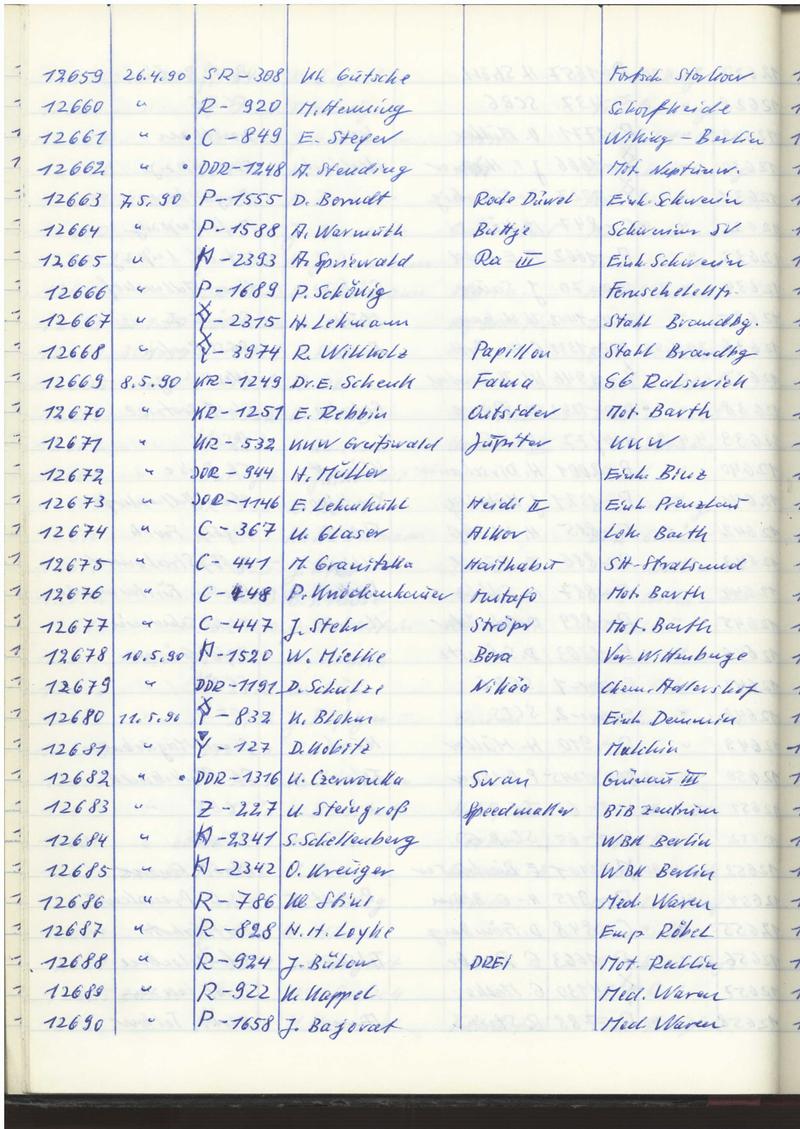 12659 26.4.90 SR-308 Kh. Gütsche Fortsch. Storkow
12660 " R-920 M. Henning Schorfheide
12661 " • C-849 E. Steyer Wiking-Berlin
12662 " • DDR-1248 A. Stending Mot. Neptunw.
12663 7.5.90 P-1555 D. Borndt Rode Düwel Einh. Schwerin
12664 " P-1588 A. Warmuth Buttje Schweriner SV
12665 " H-2393 A. Spriewald Ra III Einh. Schwerin
12666 " P-1689 P. Schönig
12667 " Y-2315 H. Lehmann Stahl Brandbg.
12668 " Y-3974 R. Willholz Papillon Stahl Brandbg
12669 8.5.90 KR-1249 Dr. E. Schenk Fama SG Ralswiek
12670 " KR-1251 E. Rebbin Outsider Mot. Barth
12671 " KR-532 KKW Greifswald Jupiter KKW
12672 " DDR-944 H. Müller Einh. Binz
12673 " DDR-1146 E. Lehmkühl Heidi II Einh. Prenzlau
12674 " C-367 U. Glaser Alkor Lok. Barth
12675 " C-441 M. Granitzka Haithabu SH-Stralsund
12676 " C-448 P. Knochenhauer Mot. Barth
12677 " C-447 J. Stehr Ströpr Mot. Barth
12678 10.5.90 H-1520 W. Mielke Bora Ver. Wittenberge
12679 " DDR-1191 D. Schulze Nikáa Chem. Adlershof
12680 11.5.90 Y-832 K. Blohm Einh. Demmin
12681 " Y-127 D. Kobitz Malchin
12682 " • DDR-1316 U. Czerwonka Swan Grünau III
12683 " Z-227 U. Steingroß Speedmaker BTB Zentrum
12684 " H-2341 S. Schellenberg WBK Berlin
12685 " H-2342 O. Kreuger WBK Berlin
12686 " R-786 Med. Waren
12687 " R-828 H. H. Loyke Emp. Röbel
12688 " R-924 J. Bülow DREI Mot. Rechlin
12689 " R-922 K. Kappel Med. Waren
12690 " P-1658 J. Bajorat Med. Waren